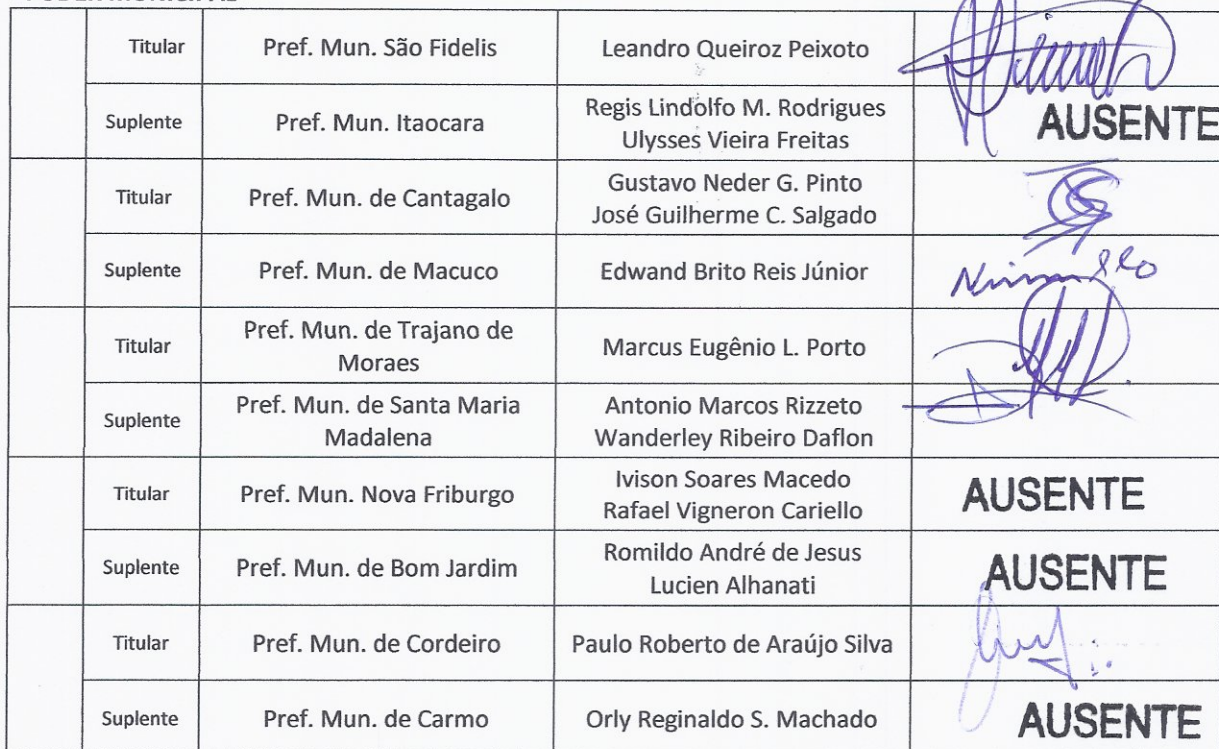 Titular
Pref. Mun. São Fidelis
Leandro Queiroz Peixoto
Suplente
Pref. Mun. Itaocara
Regis Lindolfo M. Rodrigues
Ulysses Vieira Freitas
AUSENTE
Titular
Pref. Mun. de Cantagalo
Gustavo Neder G. Pinto
José Guilherme C. Salgado
Suplente
Pref. Mun. de Macuco
Edwand Brito Reis Júnior
Titular
Pref. Mun. de Trajano de
Moraes
Marcus Eugênio L. Porto
Suplente
Pref. Mun. de Santa Maria
Madalena
Antonio Marcos Rizzeto
Wanderley Ribeiro Daflon
Titular
Pref. Mun. Nova Friburgo
Ivison Soares Macedo
Rafael Vigneron Cariello
AUSENTE
Suplente
Pref. Mun. de Bom Jardim
Romildo André de Jesus
Lucien Alhanati
AUSENTE
Titular
Pref. Mun. de Cordeiro
Paulo Roberto de Araújo Silva
Suplente
Pref. Mun. de Carmo
Orly Reginaldo S. Machado
AUSENTE